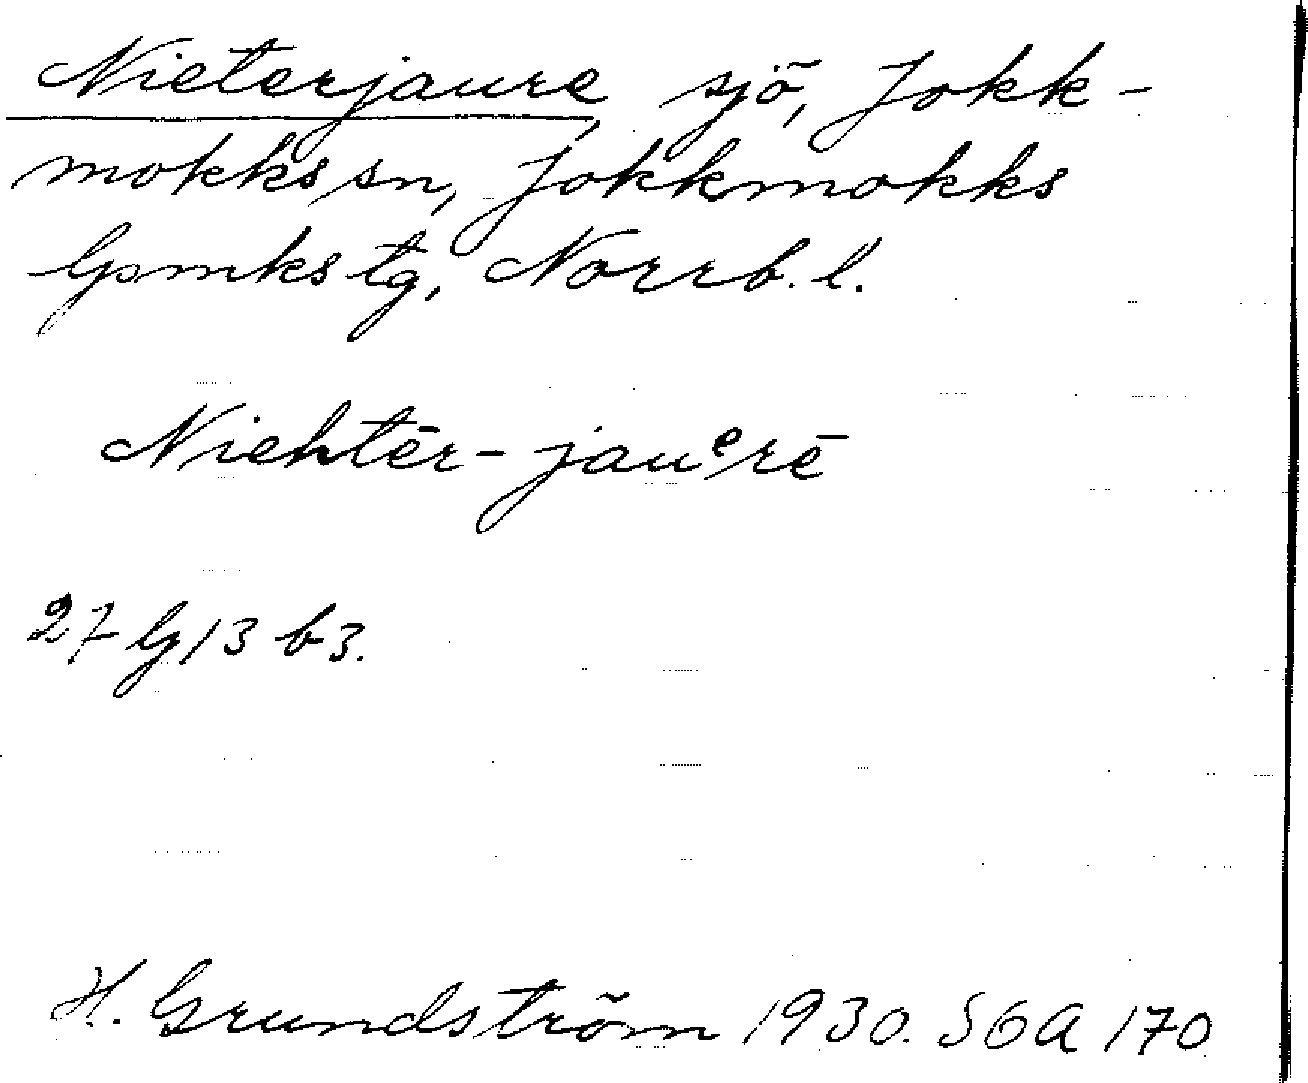 Nieterjaure, sjö, Jokk-
mokks sn, Jokkmokks
lpmks tg, Norrb. l.
Niehtēr-jauᵉrē
27 G/3 b3.
H. Grundström 1930. SOA 170